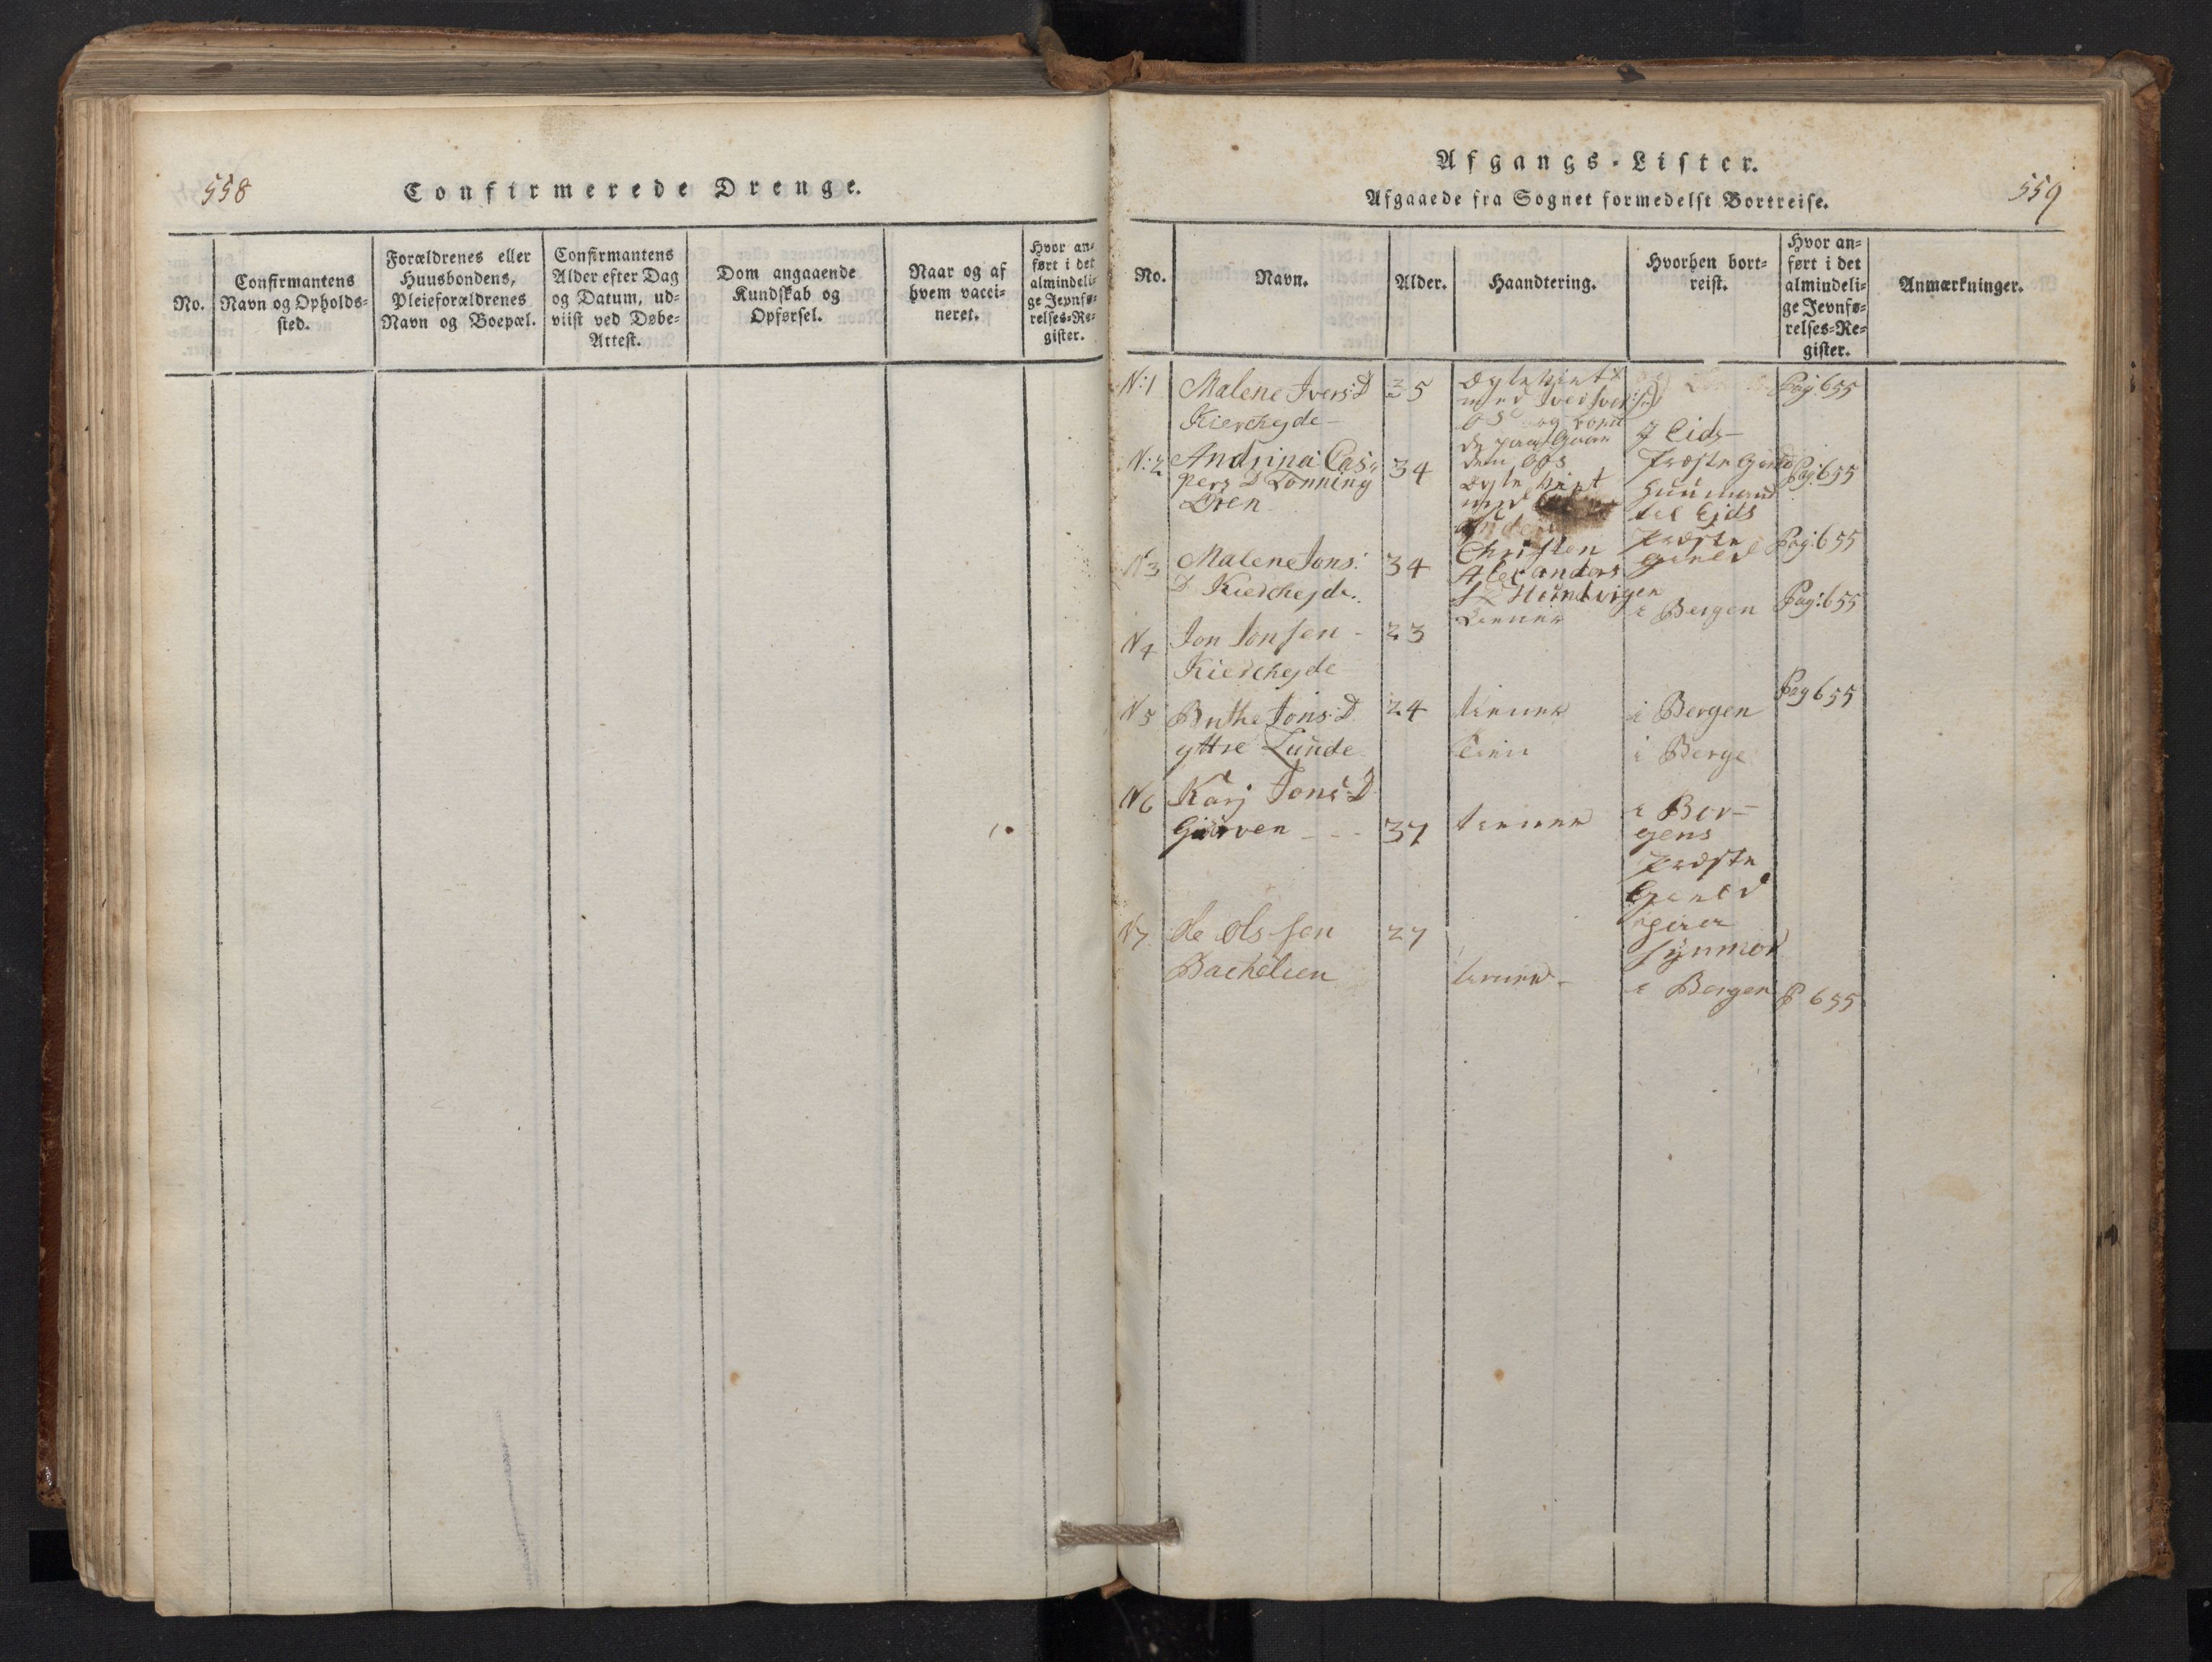 558
Confirmerede Drenge.
No.
Confirmantens
Navn og Opholds-
sted.
Forældrenes eller
Huusbondens,
Pleieforældrenes
Navn og Boepæl.
Confirmantens
Alder efter Dag
og Datum, ud-
viist ved Døbe-
Attest.
Dom angaaende
Kundskab og
Opførsel.
Naar og af
hvem vacci-
neret.
Hvor an-
ført i det
almindeli-
ge Jevnfø-
relses-Re-
gister.
Afgangs-Lister.
559
Afgaaede fra Sognet formedelst Bortreise.
No.
Navn.
Alder.
Haandtering.
Hvorhen bort-
reist.
Hvor an-
ført i det
almindeli-
ge Jevnfø-
relses-Re-
gister.
Anmærkninger.
N:1
Malene Ivers:D
Kierchejde-
35
Ægteviet
med
Pag: 655
N:2
Andrina Cas-
pers D Lønning
Øren
34
Ægteviet
med
I Eids-
Præste Gield
til Eids
Præste
Gield
Pag: 655
N3
Malene Jons:
D Kierchejde.
34
Christen
Alexanders
S Hundvigen
Pag: 655
N4
Jon Jonsen -
Kierchejde
23
tiener
i Bergen
Pag: 655
N5
Brithe Jons:D
yttre Lunde
24
tiener
i Bergen
Pag 655
i Berge
N6
Kari Jons:D
Giørven - - -
37
tiener
i Ber-
gens
Præste
Gield
N7
Ole Ols-sen
Bachelien
27
tiener -
i Bergen
P 655